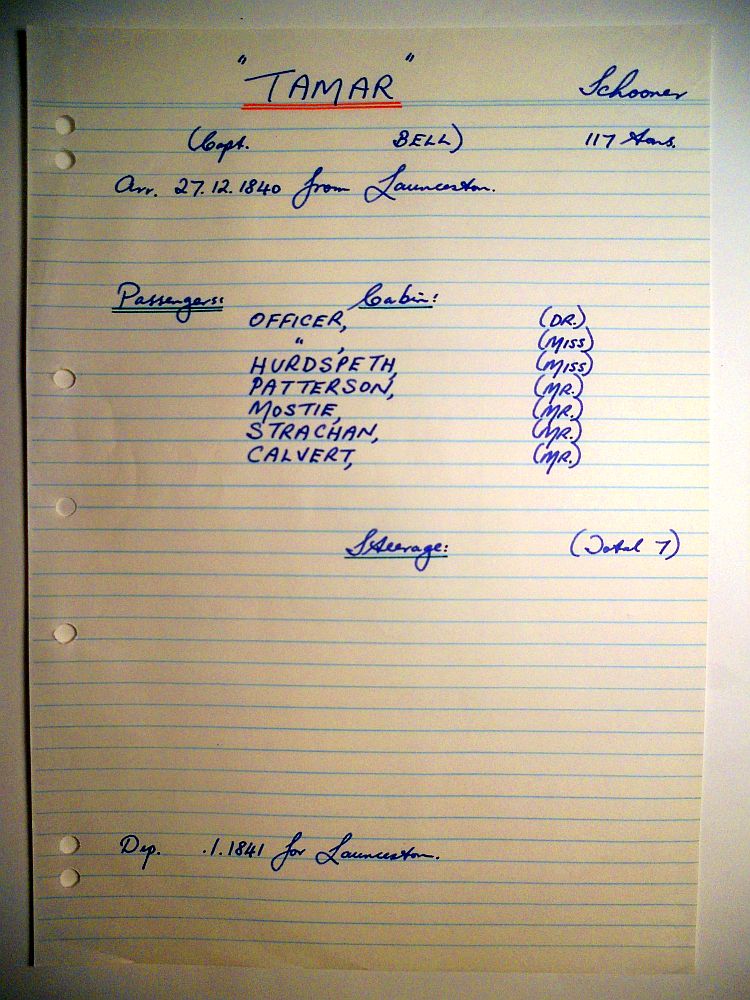 "TAMAR" Schooner
(Capt. BELL) 117 tons.
Arr. 27.12.1840 from Launceston.
Passengers: Cabin:
OFFICER, (DR.)
" , (MISS)
HURDSPETH, (MISS)
PATTERSON, (MR.)
MOSTIE, (MR.)
STRACHAN, (MR.)
CALVERT, (MR.)
Steerage: (Total 7)
Dep. .1.1841 for Launceston.